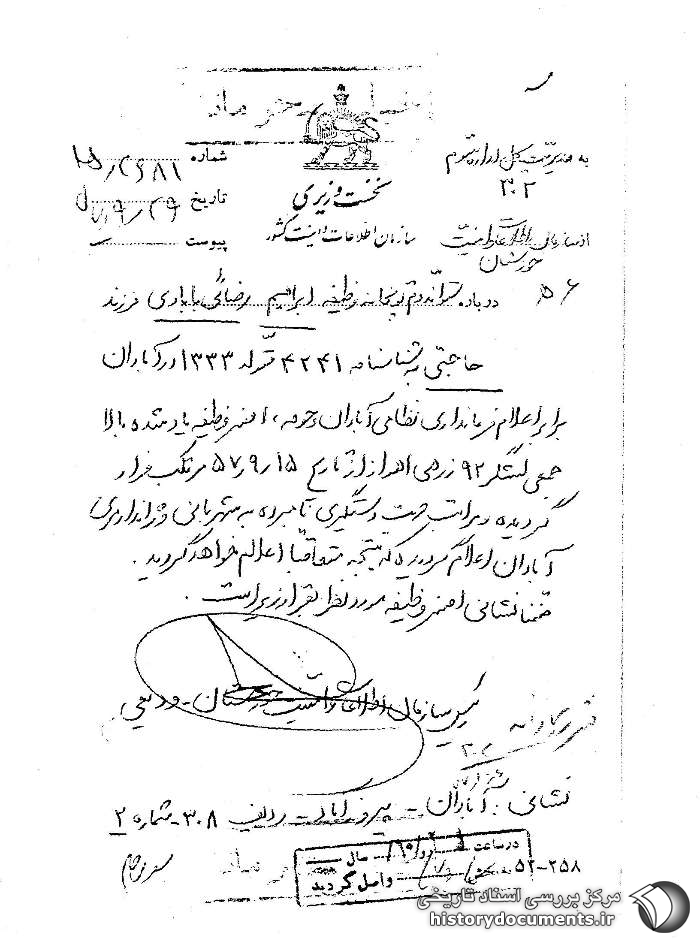 خیلی محرمانه
به مدیریت کل اداره سوم
۳۰۲
از سازمان اطلاعات و امنیت
خوزستان
نخست وزیری
سازمان اطلاعات و امنیت کشور
شماره
تاریخ ۵۷/۹/۲۹
پیوست
درباره ستواندوم توپخانه وظیفه ابراهیم رضائی بابادی فرزند
حاجتی به شناسنامه ۴۲۴۱ متولد ۱۳۳۳ در آبادان
برابر اعلام فرمانداری نظامی آبادان و حومه، افسر وظیفه یاد شده بالا
جمعی لشکر ۹۲ زرهی اهواز از تاریخ ۵۷/۹/۱۵ مرتکب فرار
گردیده و مراتب جهت دستگیری نامبرده به شهربانی و ژاندارمری
آبادان اعلام گردیده که نتیجه متعاقبا اعلام خواهد گردید.
ضمنا نشانی افسر وظیفه مورد نظر بقرار زیر است.
رئیس سازمان اطلاعات و امنیت خوزستان - ودیعی
نشانی: آبادان - پیروزآباد - ردیف ۳۰۸ - شماره ۲
در ساعت
سال
واصل گردید
۵۲-۲۵۸
مرکز بررسی اسناد تاریخی
historydocuments.ir